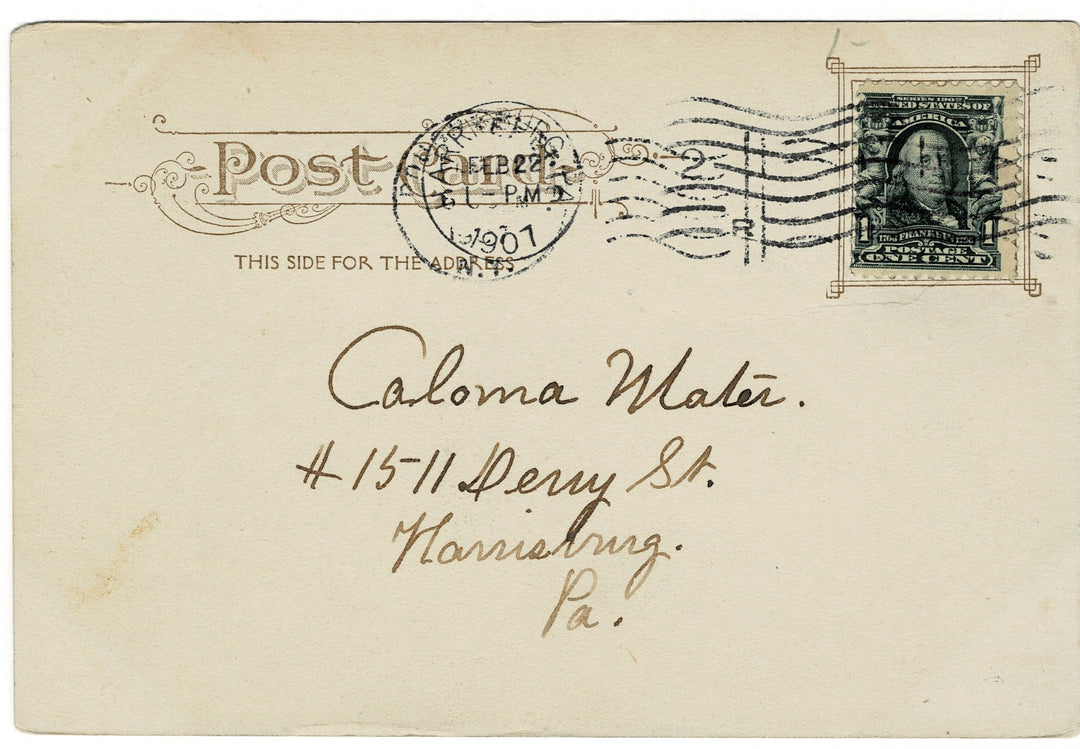 Post Card
HARRISBURG, PA
FEB 22
PM
1907
N.Y.
2
R
SERIES 1902
UNITED STATES OF
AMERICA
1 1
1706 FRANKLIN 1790
POSTAGE
ONE CENT
THIS SIDE FOR THE ADDRESS
Caloma Mater.
# 1511 Derry St.
Harrisburg.
Pa.